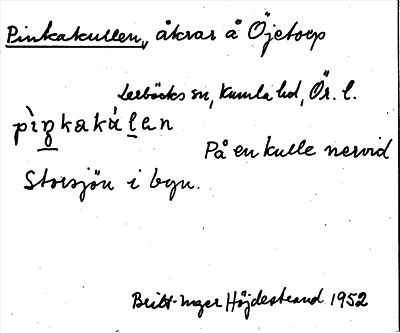 Pinkakullen, åkrar å Öjetorp
Lerbäcks sn, Kumla hd, Ör. l.
pìŋkakálan
På en kulle nervid
Storsjön i byn.
Britt-Inger Höjdestrand 1952